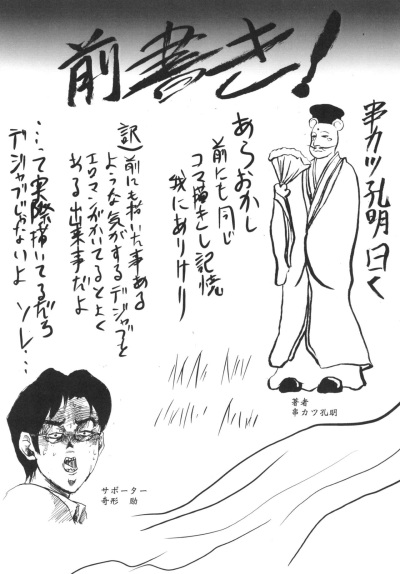 前書き!
串カツ孔明曰く
あらおかし
前にも同じ
コマ描きし記憶
我にありけり
訳)前にも描いた事ある
ような気がするデジャブを
エロマンガかいてるとよく
ある出来事だよ
…って実際描いてるだろ
デジャブじゃないよ ソレ…
著者
串カツ孔明
サポーター
奇形 助